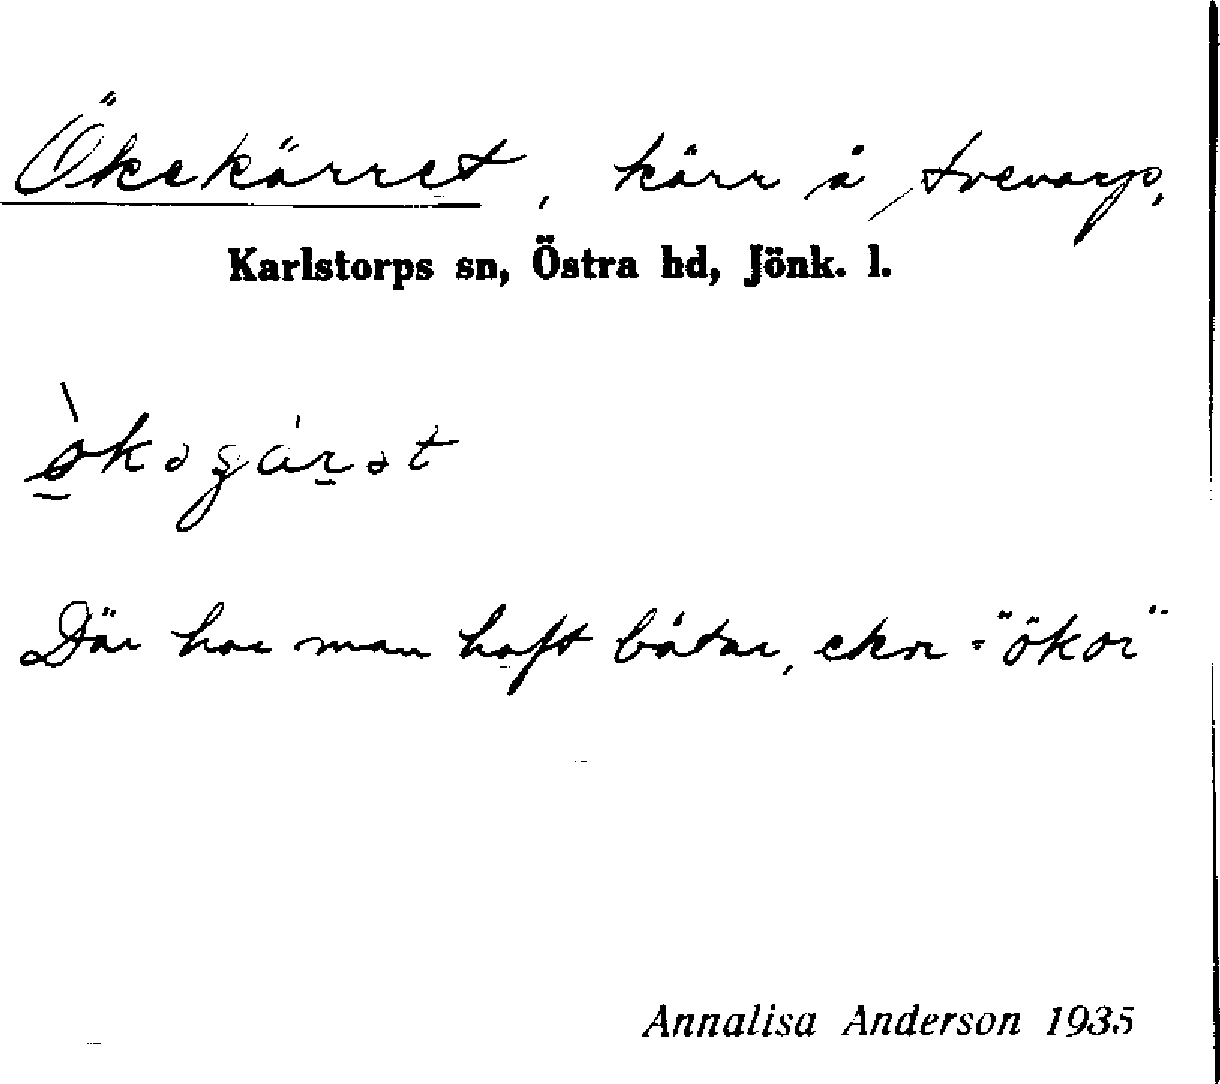 Ökekärret, kärr å Trevarp.
Karlstorps sn, Östra hd, Jönk. l.
Där har man haft båtar, ekor = "ökor"
Annalisa Anderson 1935